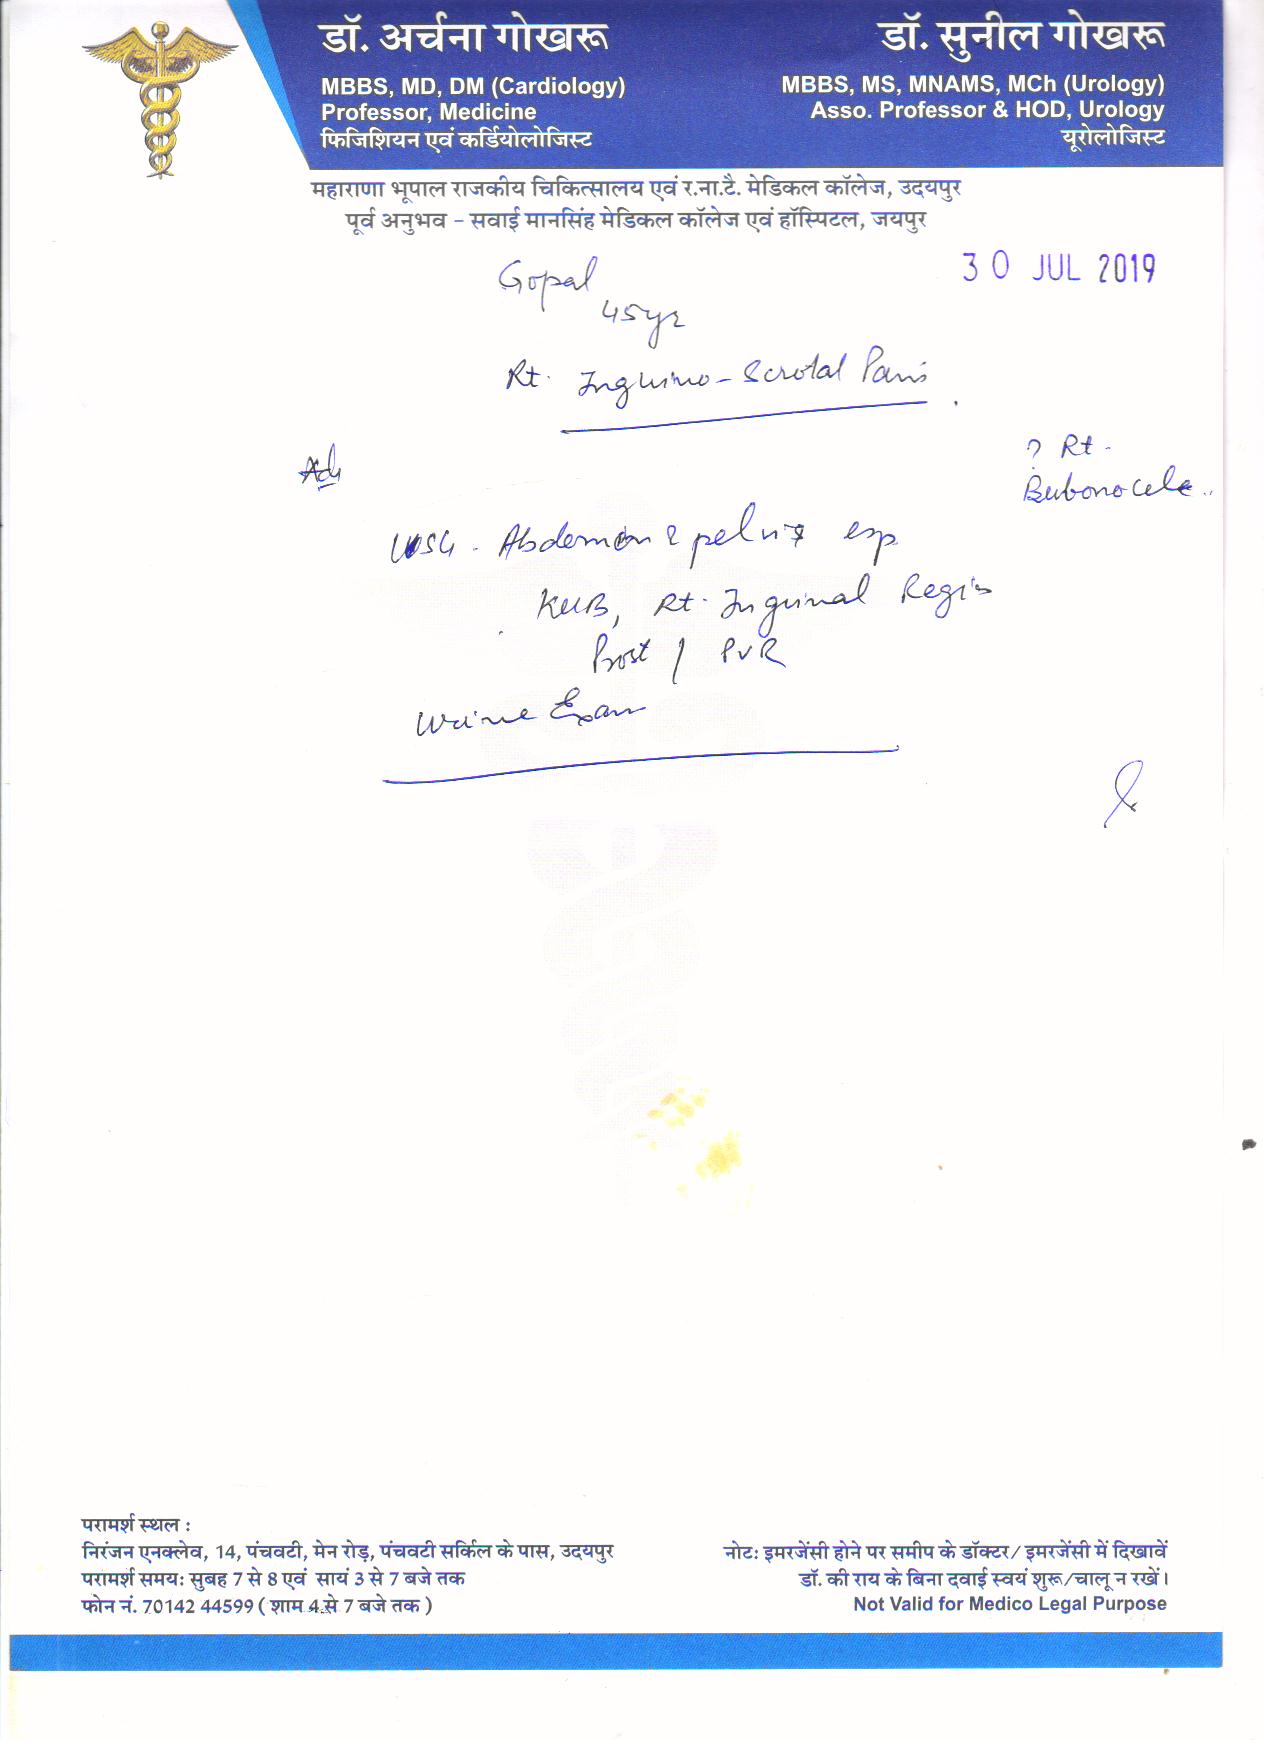 डॉ. अर्चना गोखरू
MBBS, MD, DM (Cardiology)
Professor, Medicine
फिजिशियन एवं कर्डियोलोजिस्ट
डॉ. सुनील गोखरू
MBBS, MS, MNAMS, MCh (Urology)
Asso. Professor & HOD, Urology
यूरोलोजिस्ट
महाराणा भूपाल राजकीय चिकित्सालय एवं र.ना.टै. मेडिकल कॉलेज, उदयपुर
पूर्व अनुभव - सवाई मानसिंह मेडिकल कॉलेज एवं हॉस्पिटल, जयपुर
30 JUL 2019
Gopal
45yr
Rt. Inguino-Scrotal Pain
? Rt.
Bubonocele..
Adv
USG. Abdomen & pelvis esp
KUB, Rt. Inguinal Region
Prost / PVR
Urine Exam
परामर्श स्थल :
निरंजन एनक्लेव, 14, पंचवटी, मेन रोड़, पंचवटी सर्किल के पास, उदयपुर
परामर्श समय: सुबह 7 से 8 एवं सायं 3 से 7 बजे तक
फोन नं. 70142 44599 ( शाम 4 से 7 बजे तक )
नोट: इमरजेंसी होने पर समीप के डॉक्टर/ इमरजेंसी में दिखावें
डॉ. की राय के बिना दवाई स्वयं शुरू/चालू न रखें।
Not Valid for Medico Legal Purpose